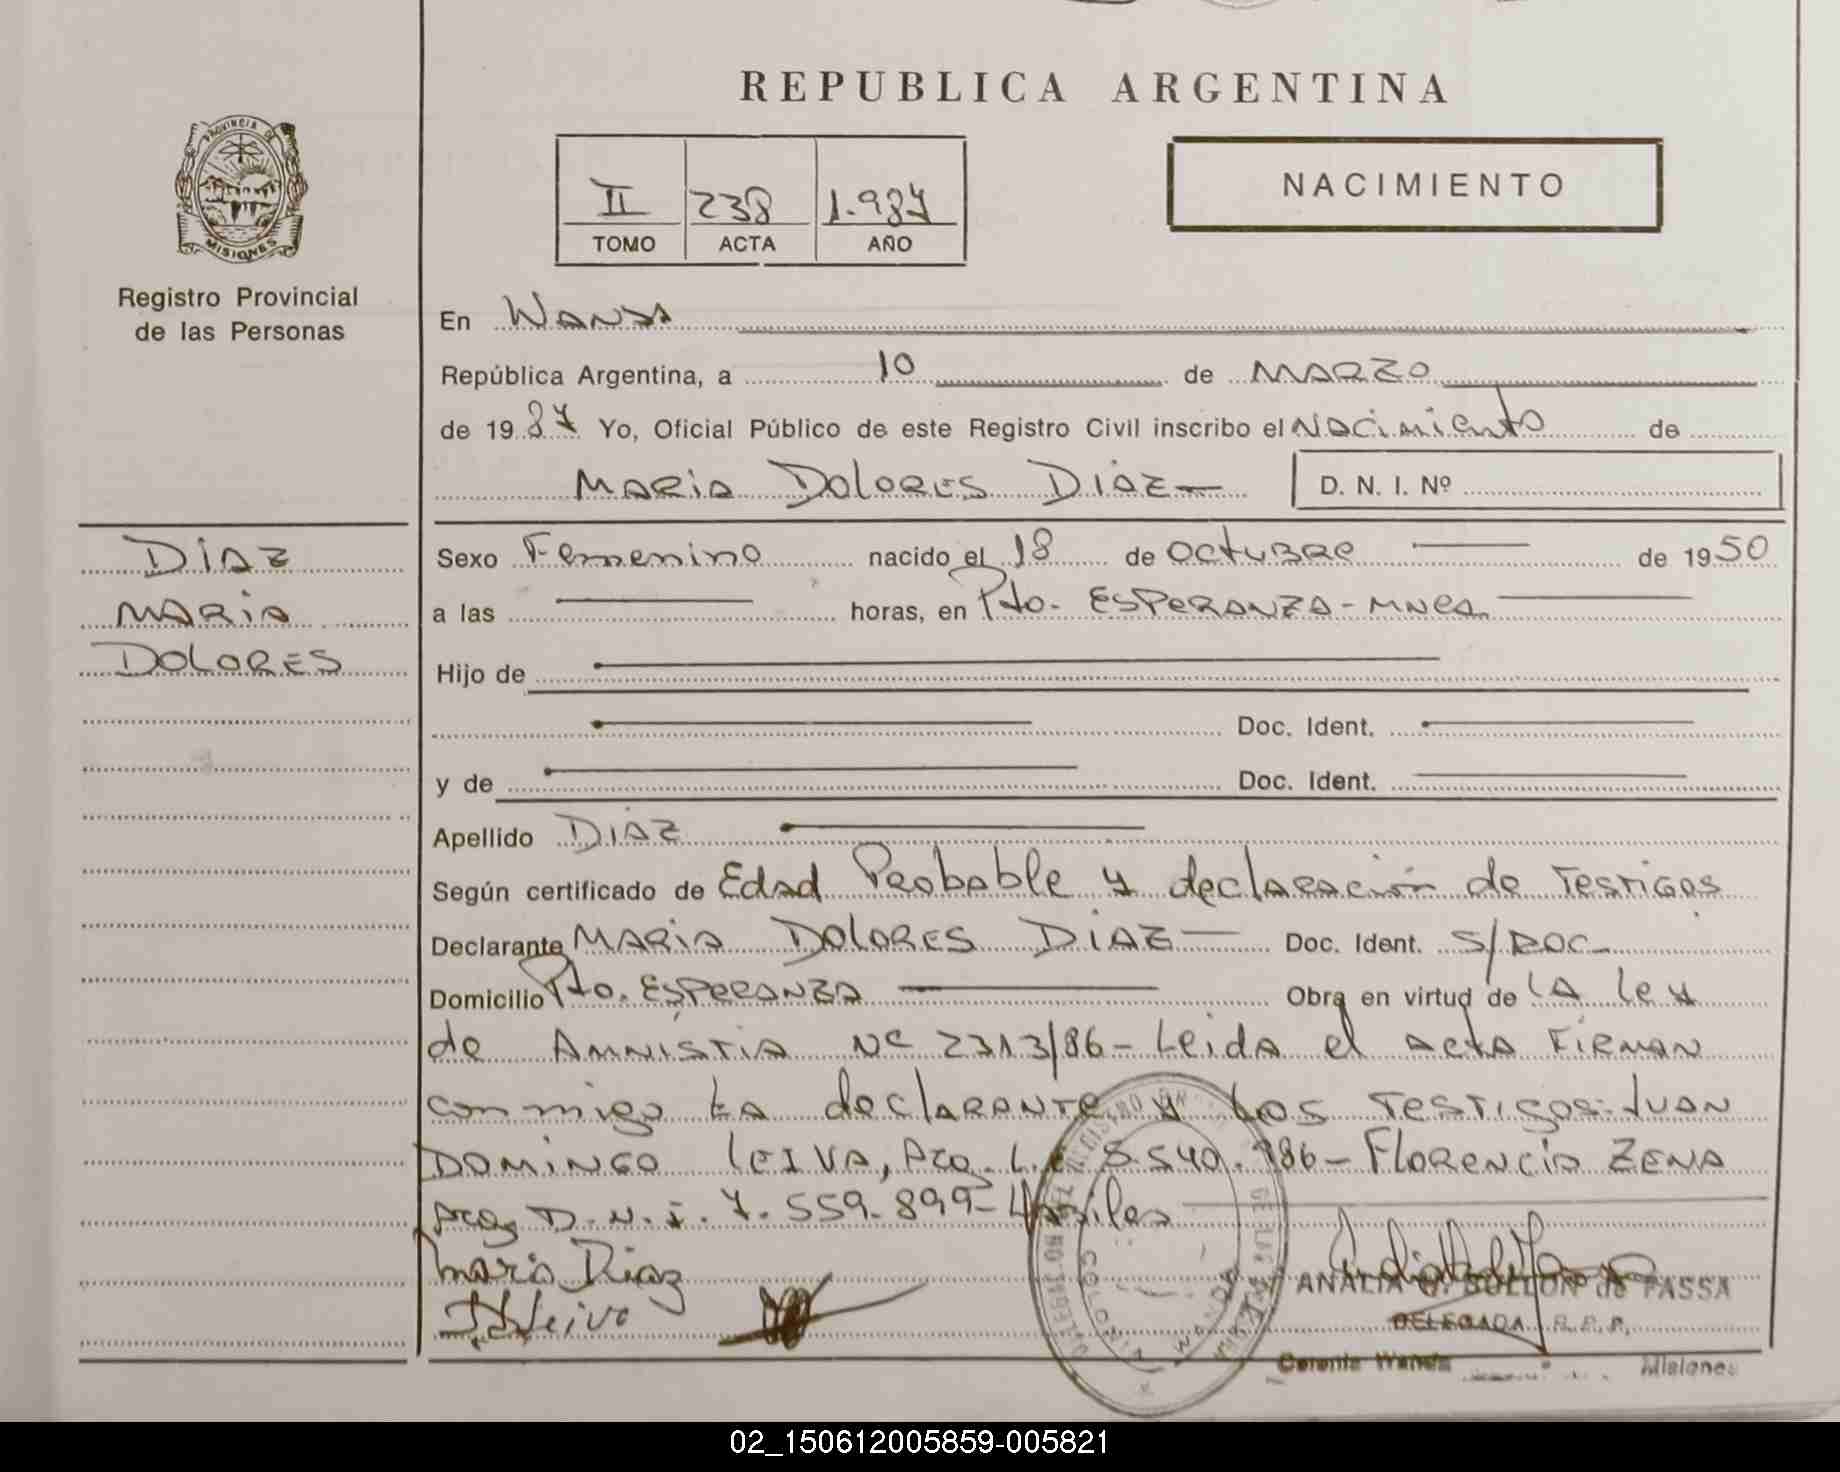 REPUBLICA ARGENTINA
PROVINCIA DE
MISIONES
Registro Provincial
de las Personas
II 238 1.987
TOMO ACTA AÑO
NACIMIENTO
En Wanda
República Argentina, a 10 de MARZO
de 1987 Yo, Oficial Público de este Registro Civil inscribo el Nacimiento de
MARIA DOLORES DIAZ D. N. I. Nº
DIAZ
MARIA
DOLORES
Sexo Femenino nacido el 18 de octubre de 1950
a las horas, en Pto. ESPERANZA - MNES.
Hijo de
Doc. Ident.
y de Doc. Ident.
Apellido DIAZ
Según certificado de Edad Probable y declaración de Testigos
Declarante MARIA DOLORES DIAZ Doc. Ident. S/DOC.
Domicilio Pto. ESPERANZA Obra en virtud de LA Ley
de AMNISTIA Nº 2313/86 - Leida el acta FIRMAN
conmigo LA declarante y LOS TESTIGOS: JUAN
DOMINGO LEIVA, Arg. L.E. 8.540.986 - FLORENCIA ZENA
Arg. D.N.I. 7.559.899 - Hábiles
Maria Diaz
JDLeiva
ANALIA de FASSA
DELEGADA R.P.P.
Colonia Wanda Misiones
02_150612005859-005821